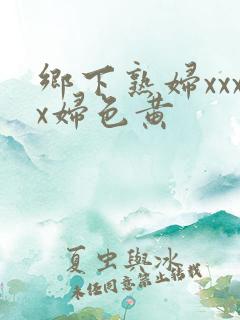 鄉下熟婦xxx
x婦色黃
夏虫與冰
未任同意禁止转载